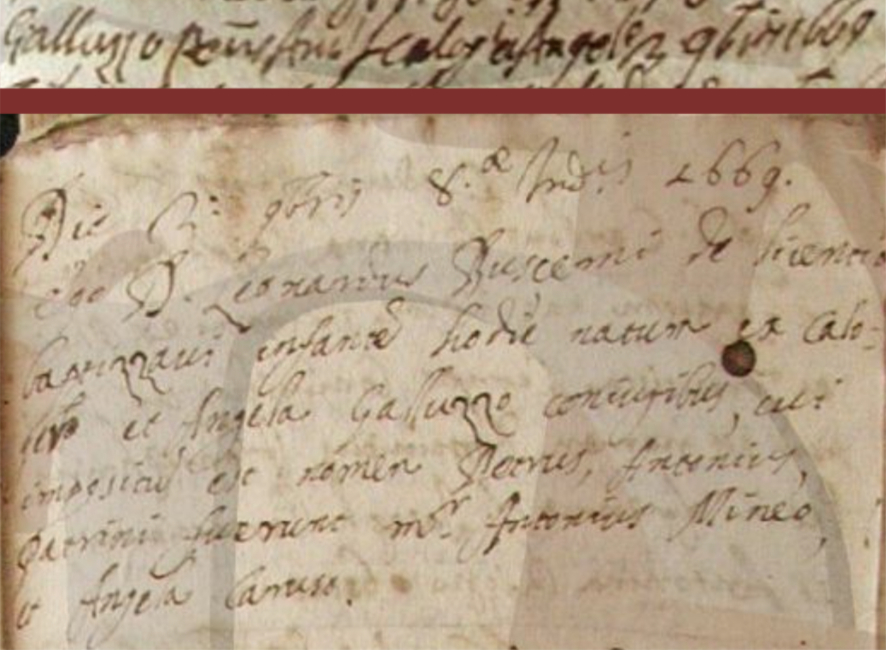 Galluzzo Petrus Ant. f. Calog. et Angele 2 9bris 1669
Die 2: 9bris 8.æ Indis 1669.
Ego D. Leonardus Buscemi de licentia
baptizzavi infantē hodie natum ex Calo-
gero et Angela Galluzzo coniugibus, cui
impositū est nomen Petrus, Antonius,
Patrini fuerunt mr. Antonius Mineo,
et Angela Caruso.